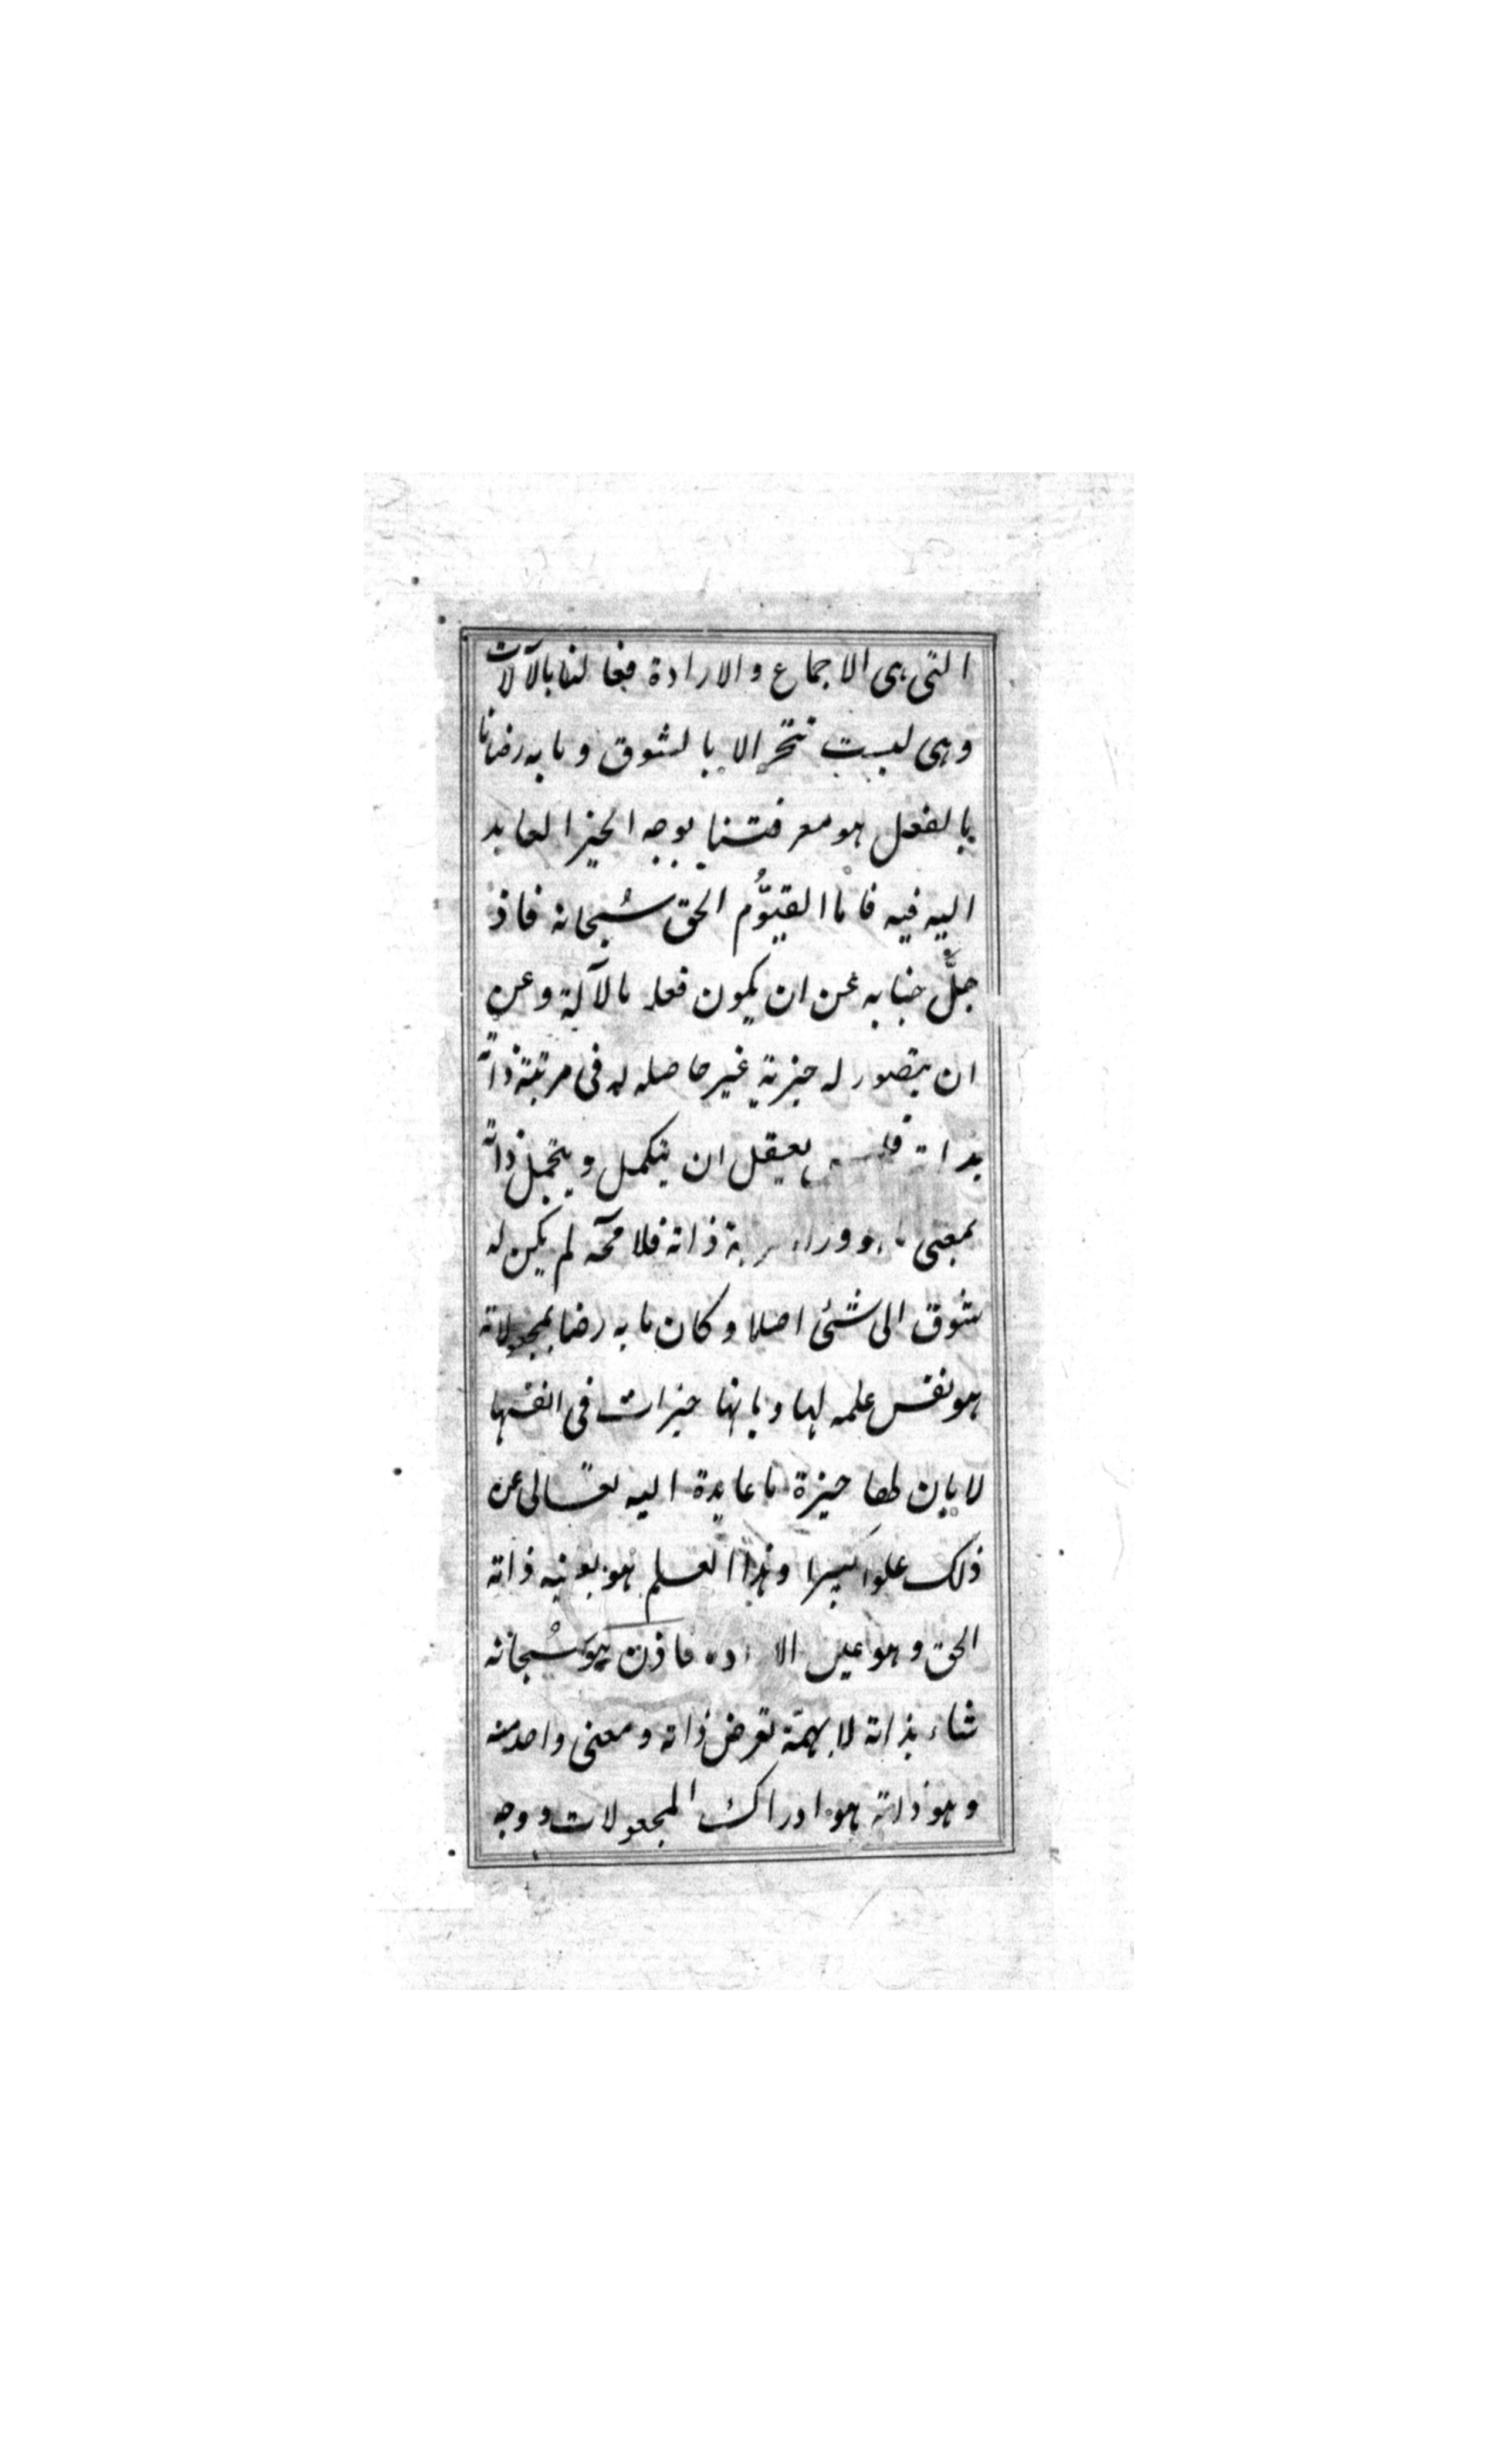 التى هى الاجماع والارادة فعالنا بالآلات
وهى ليست تتحر الا بالشوق وما به رضانا
بالفعل هو معرفتنا بوجه الخير العايد
اليه فيه فاما القيُّوم الحق سُبحانه فاذ
جلَّ جنابه عن ان يكون فعله بالآلة وعن
ان يتصور له خيرية غير حاصله له فى مرتبة ذاته
بذاته فليس يعقل ان يتكمل ويتجمل ذاته
بمعنى ما وراء ذاته فلا محة لم يكن له
شوق الى شئ اصلا وكان ما به رضا بمجعولاته
هو نفس علمه لها وبانها خيرات فى انفسها
لا بان لها خيرة ما عايدة اليه تعالى عن
ذلك علوا كبيرا وهذا العلم هو بعينه ذاته
الحق وهو عين الارادة فاذن هو سُبحانه
شاء بذاته لا بهمّة تعرض ذاته ومعنى واحد منه
وهو ذاته هو ادراك المجعولات ووجه